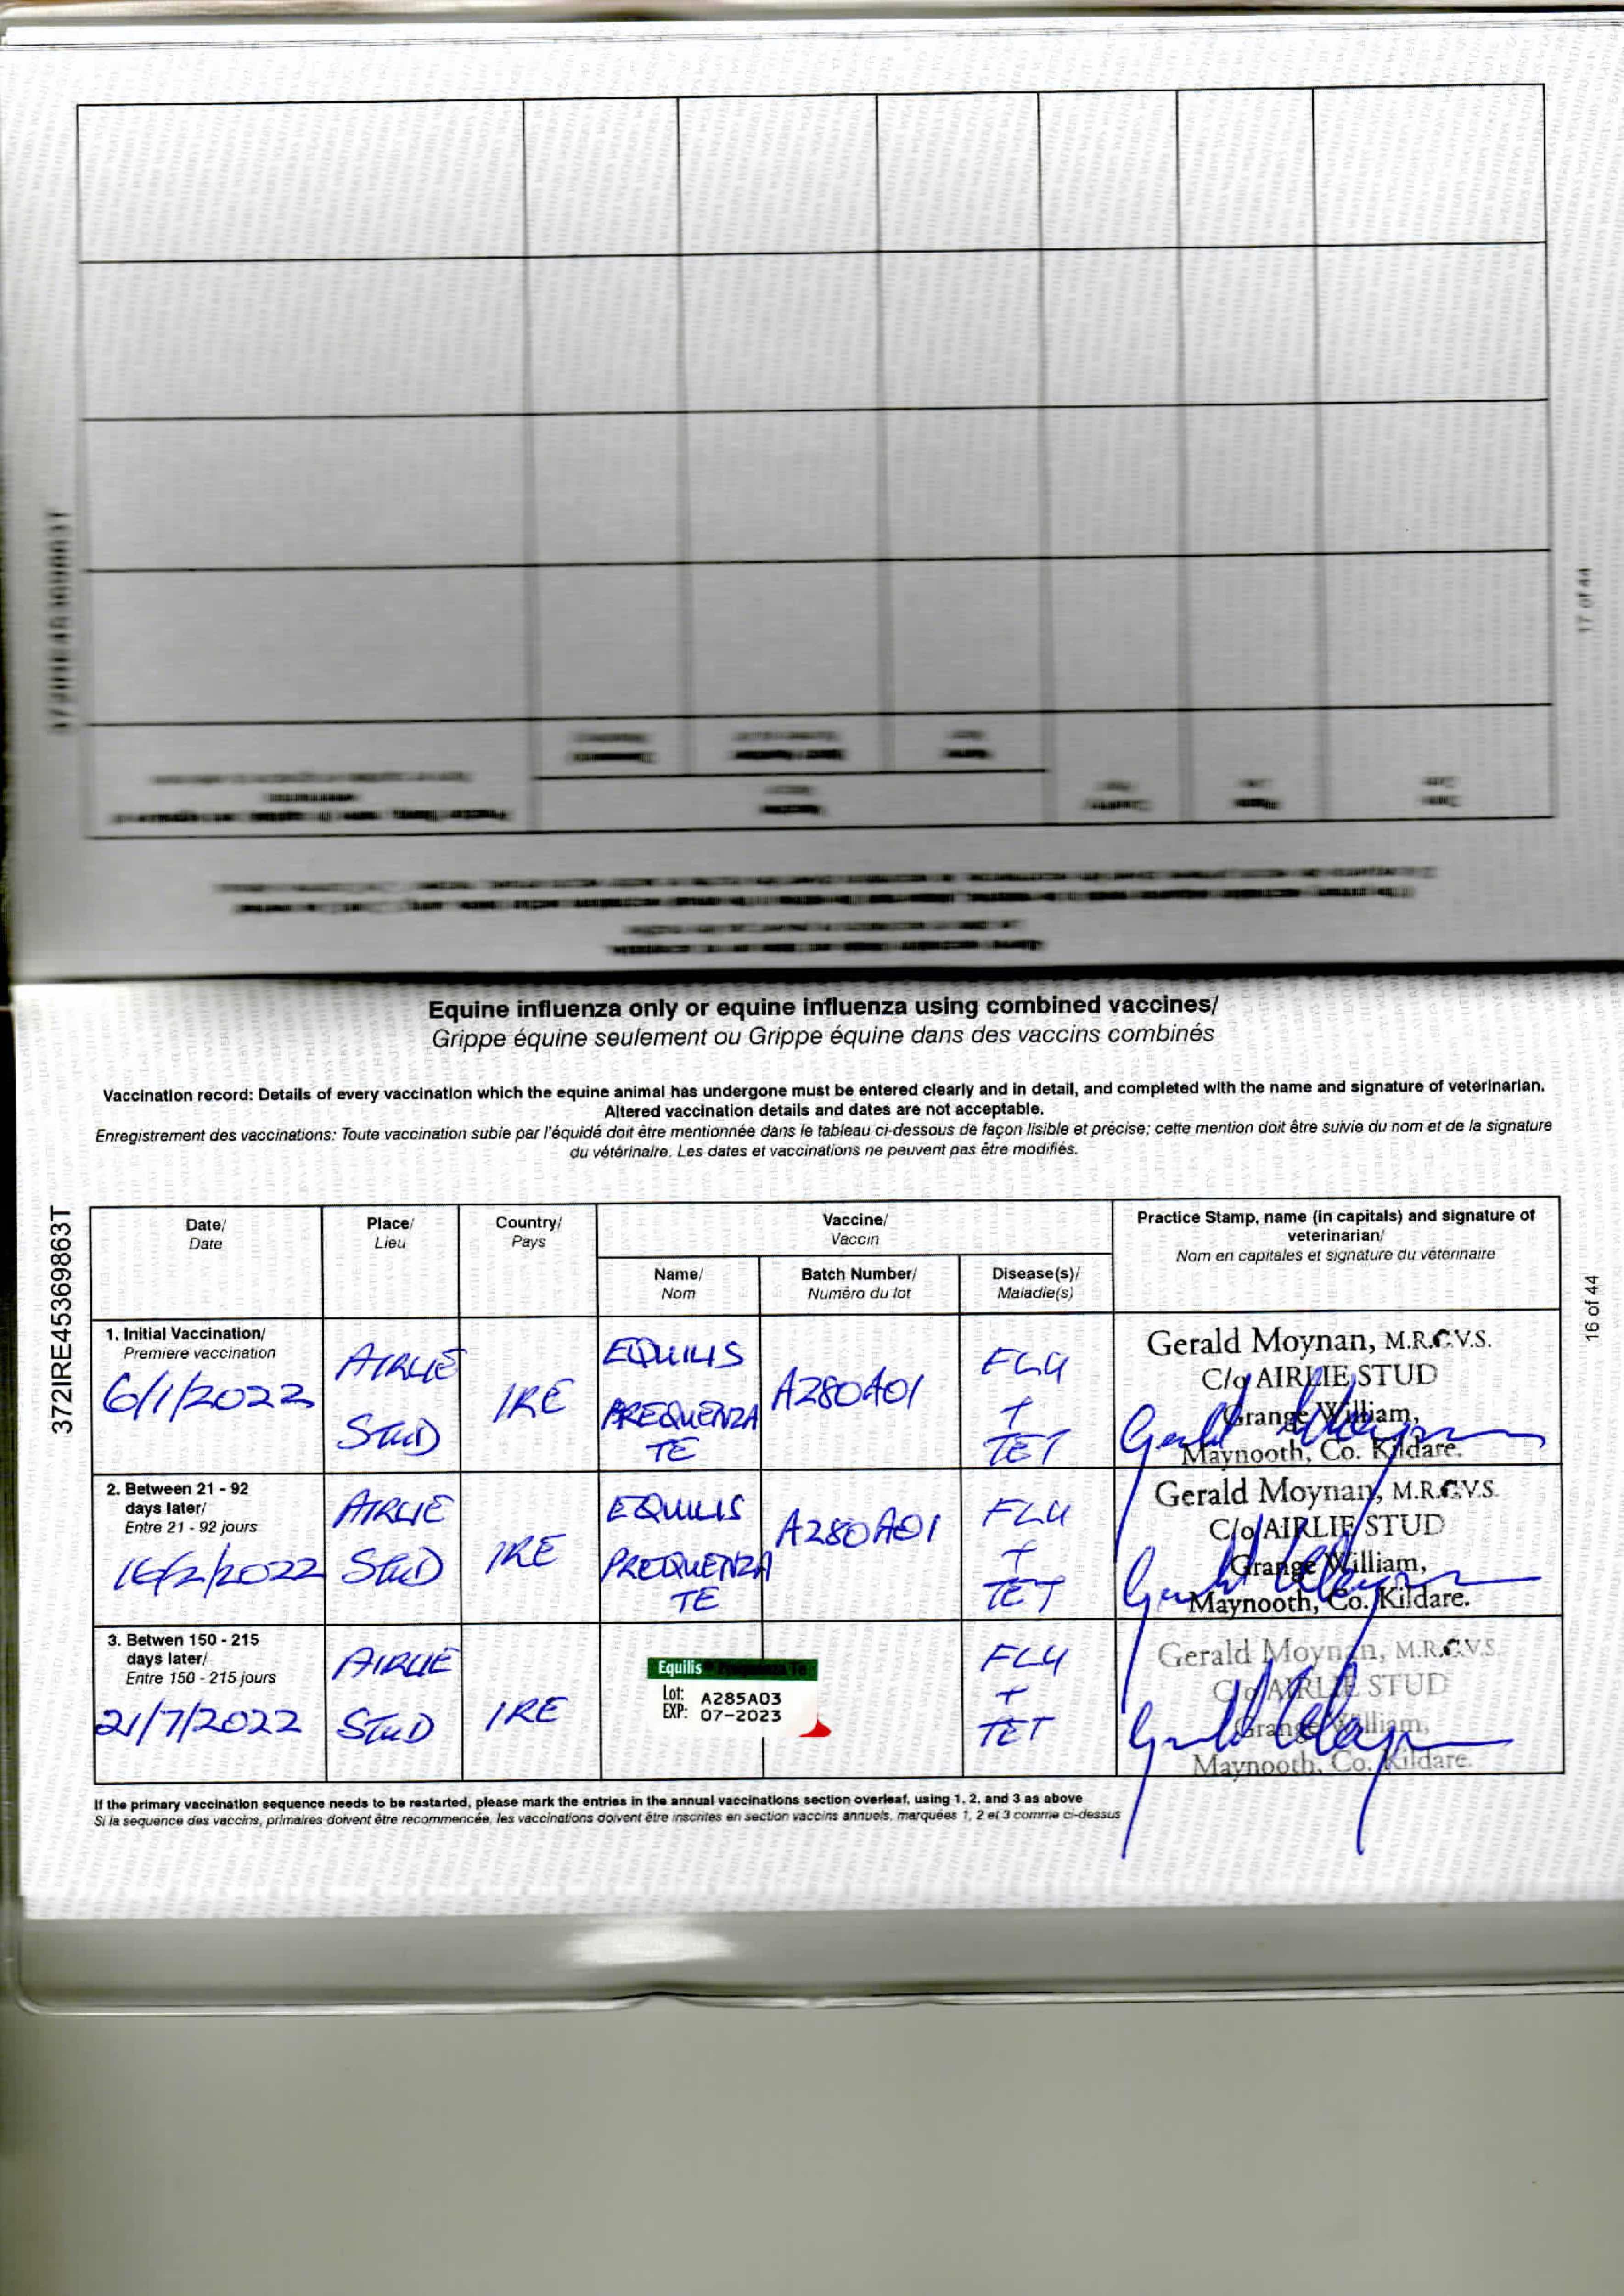 17 of 44
Equine influenza only or equine influenza using combined vaccines/
Grippe équine seulement ou Grippe équine dans des vaccins combinés
Vaccination record: Details of every vaccination which the equine animal has undergone must be entered clearly and in detail, and completed with the name and signature of veterinarian.
Altered vaccination details and dates are not acceptable.
Enregistrement des vaccinations: Toute vaccination subie par l'équidé doit être mentionnée dans le tableau ci-dessous de façon lisible et précise; cette mention doit être suivie du nom et de la signature
du vétérinaire. Les dates et vaccinations ne peuvent pas être modifiés.
372IRE45369863T
16 of 44
Date/
Date
Place/
Lieu
Country/
Pays
Vaccine/
Vaccin
Name/
Nom
Batch Number/
Numéro du lot
Disease(s)/
Maladie(s)
Practice Stamp, name (in capitals) and signature of
veterinarian/
Nom en capitales et signature du vétérinaire
1. Initial Vaccination/
Premiere vaccination
6/1/2022
AIRLIE
STUD
IRE
EQUILIS
PREQUENZA
TE
A280A01
FLU
+
TET
Gerald Moynan, M.R.C.V.S.
C/o AIRLIE STUD
Grange William,
Maynooth, Co. Kildare.
2. Between 21 - 92
days later/
Entre 21 - 92 jours
16/2/2022
AIRLIE
STUD
IRE
EQUILIS
PREQUENZA
TE
A280A01
FLU
+
TET
Gerald Moynan, M.R.C.V.S.
C/o AIRLIE STUD
Grange William,
Maynooth, Co. Kildare.
3. Betwen 150 - 215
days later/
Entre 150 - 215 jours
21/7/2022
AIRLIE
STUD
IRE
Equilis Prequenza Te
Lot: A285A03
EXP: 07-2023
FLU
+
TET
Gerald Moynan, M.R.C.V.S.
C/o AIRLIE STUD
Grange William,
Maynooth, Co. Kildare.
If the primary vaccination sequence needs to be restarted, please mark the entries in the annual vaccinations section overleaf, using 1, 2, and 3 as above
Si la sequence des vaccins, primaires doivent être recommencée, les vaccinations doivent être inscrites en section vaccins annuels, marquées 1, 2 et 3 comme ci-dessus